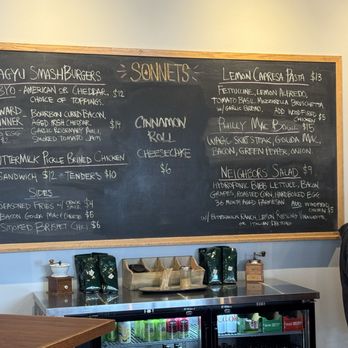 AGYU SMASHBURGERS
BYO - AMERICAN OR CHEDDAR, $12
CHOICE OF TOPPINGS.
WARD WINNER
BOURBON CURED BACON,
AGED IRISH CHEDDAR,
GARLIC ROSEMARY AIOLI,
SMOKED TOMATO JAM
$14
EGG
BUTTERMILK PICKLE BRINED CHICKEN
SANDWICH $12 TENDERS $10
SIDES
SEASONED FRIES $4
BACON GOUDA MAC $6
SMOKED BRISKET CHILI $6
SONNETS
CINNAMON
ROLL
CHEESECAKE
$6
LEMON CAPRESA PASTA $13
FETTUCINE, LEMON ALFREDO,
TOMATO BASIL MOZZARELLA BRUSCHETTA
W/ GARLIC BREAD.
ADD CHICKEN $5
PHILLY MAC BOWL $15
WAGU SKIRT STEAK, GOUDA MAC,
BACON, GREEN PEPPER, ONION.
NEIGHBORS SALAD $9
HYDROPONIC BIBB LETTUCE, BACON
GRAPES, ROASTED CORN, HARD BOILED EGG
30 MONTH AGED PARMESAN
ADD CHICKEN $5
RANCH, LEMON VINAIGRETTE,
OR ITALIAN